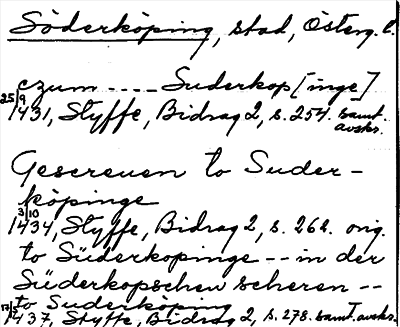 Söderköping, stad, Österg. l.
czum ---- Suderkop[inge]
25/9 1431, Styffe, Bidrag 2, s. 254. samt. avskr.
Gescreuen to Suder-
köpinge
3/10 1434, Styffe, Bidrag 2, s. 262. orig.
to Süderkopinge -- in der
Süderkopschen scheren --
to Suderköping
1437, Styffe, Bidrag 2, s. 278. samt. avskr.